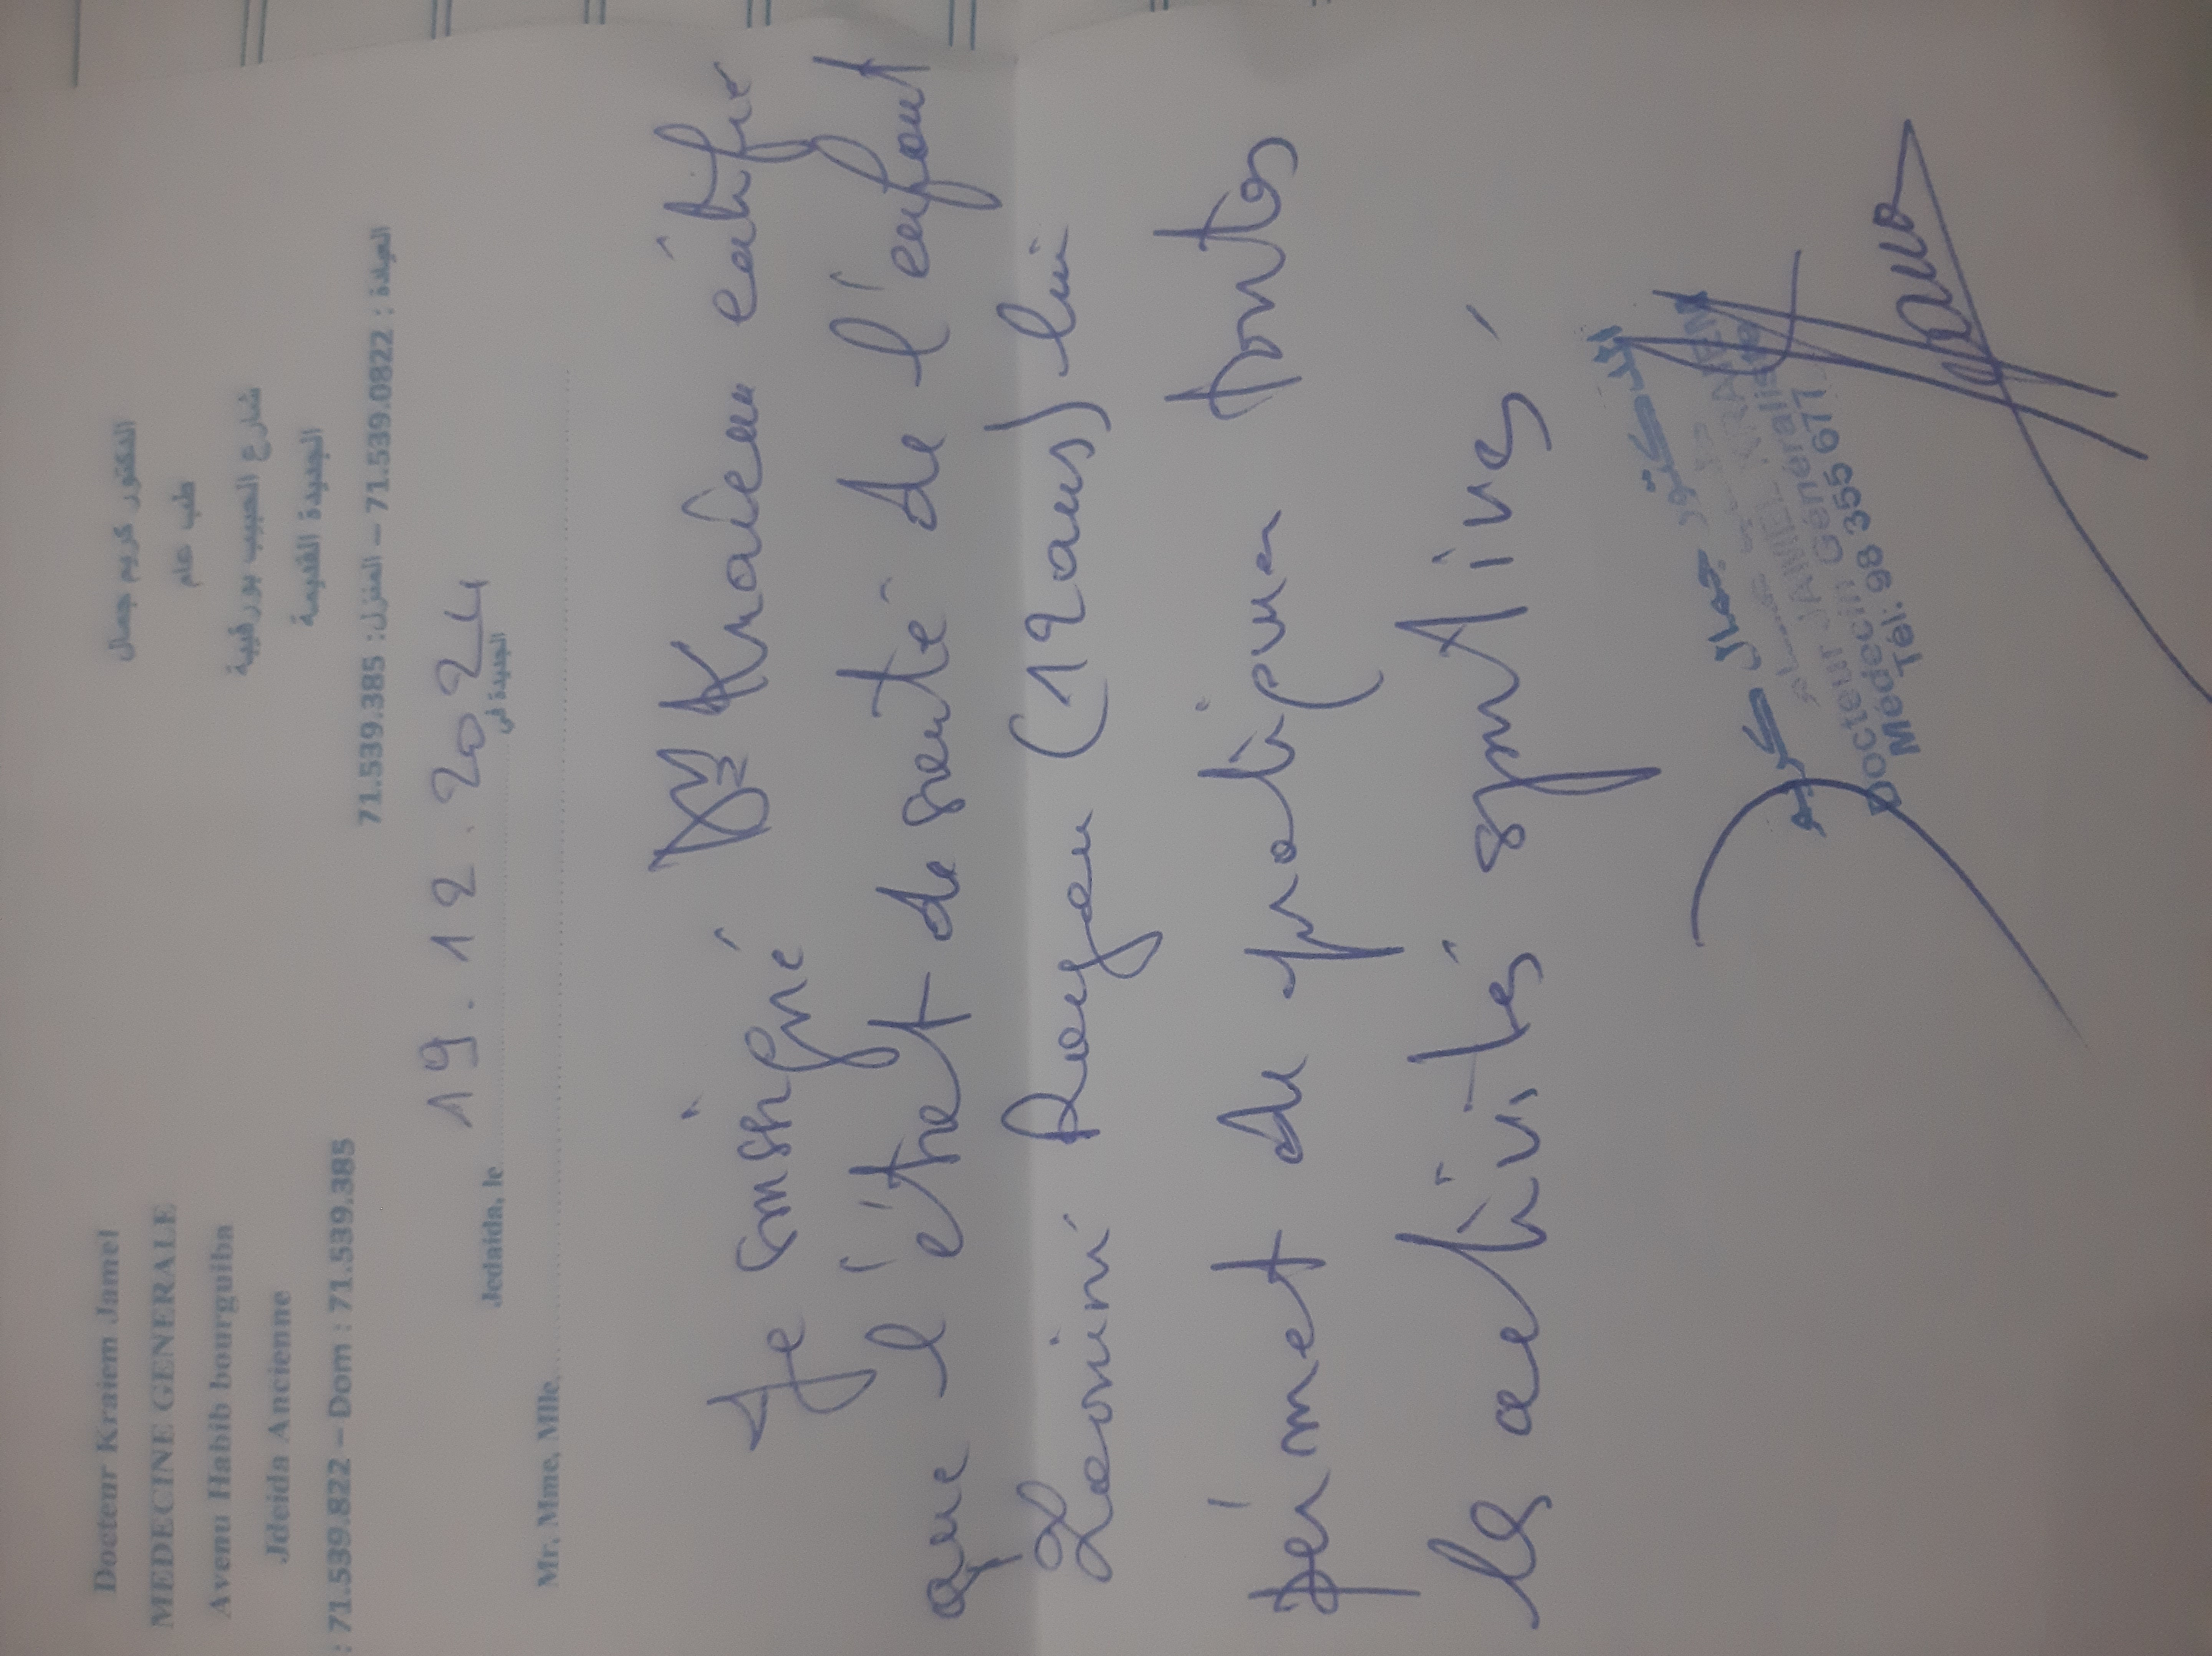 Docteur Kraiem Jamel
MEDECINE GENERALE
Avenu Habib bourguiba
Jdeida Ancienne
: 71.539.822 – Dom : 71.539.385
الدكتور كريم جمال
طب عام
شارع الحبيب بورقيبة
الجديدة القديمة
العيادة : 71.539.0822 – المنزل: 71.539.385
Jedaida, le 19.12.2024 الجديدة في
Mr, Mme, Mlle,
Je soussigné Dr Kraiem certifie
que l'état de santé de l'enfant
(12 ans) lui
permet de pratiquer toutes
les activités sportives
الدكتور جمال كريم
Docteur JAMEL KRAIEM
Médecin Généraliste
Tél: 98 355 677